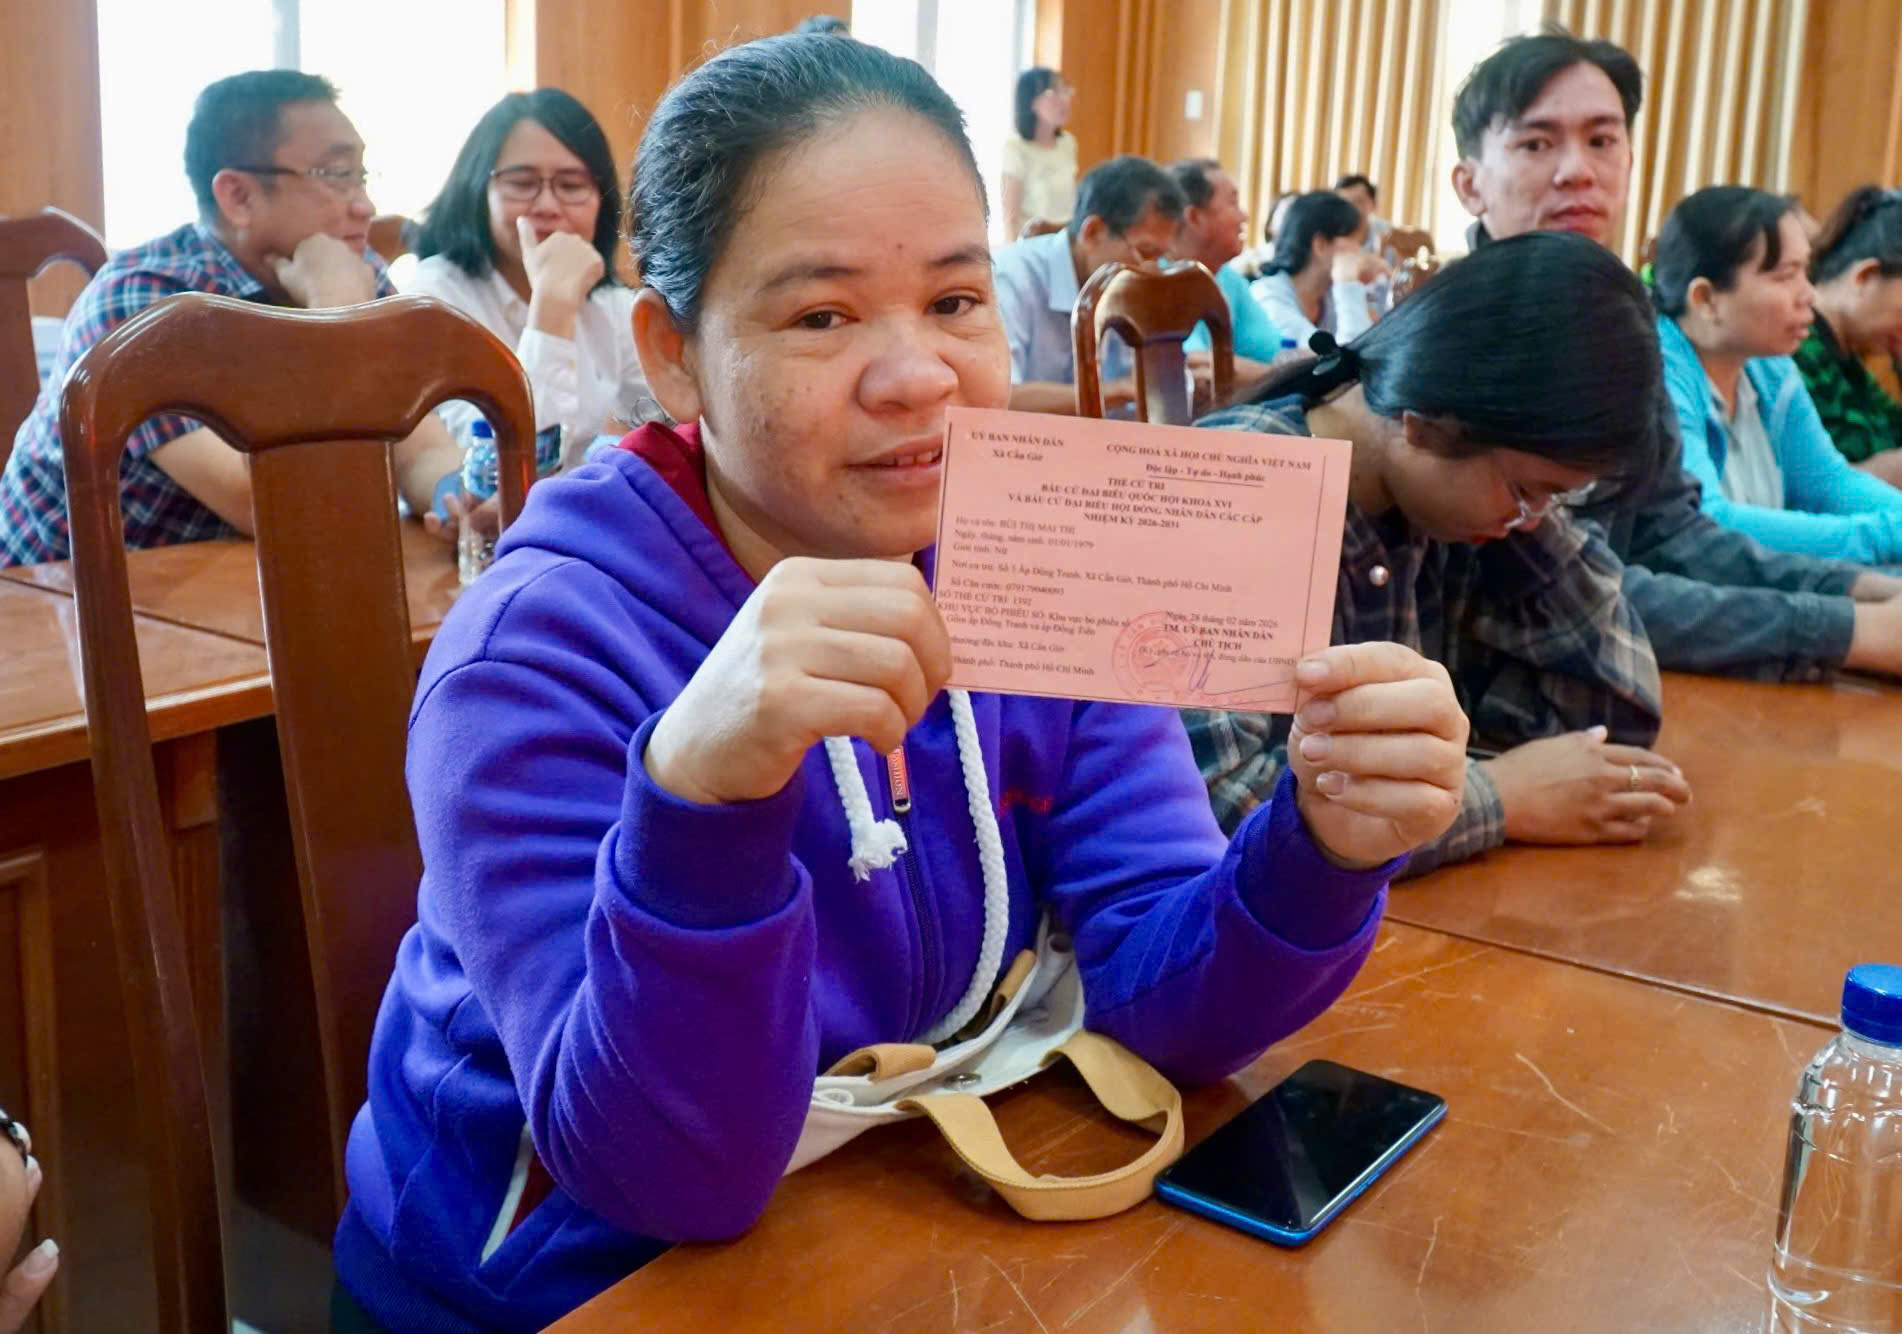 UỶ BAN NHÂN DÂN
Xã Cần Giờ
CỘNG HOÀ XÃ HỘI CHỦ NGHĨA VIỆT NAM
Độc lập - Tự do - Hạnh phúc
THẺ CỬ TRI
BẦU CỬ ĐẠI BIỂU QUỐC HỘI KHOÁ XVI
VÀ BẦU CỬ ĐẠI BIỂU HỘI ĐỒNG NHÂN DÂN CÁC CẤP
NHIỆM KỲ 2026-2031
Họ và tên: BÙI THỊ MAI THI
Ngày, tháng, năm sinh: 01/01/1979
Giới tính: Nữ
Nơi cư trú: Số 1 Ấp Đồng Tranh, Xã Cần Giờ, Thành phố Hồ Chí Minh
Số Căn cước: 079179040093
SỐ THẺ CỬ TRI: 1392
KHU VỰC BỎ PHIẾU SỐ: Khu vực bỏ phiếu số
Gồm ấp Đồng Tranh và ấp Đồng Tiến
phường/đặc khu: Xã Cần Giờ
thành phố: Thành phố Hồ Chí Minh
Ngày 26 tháng 02 năm 2026
TM. UỶ BAN NHÂN DÂN
CHỦ TỊCH
đóng dấu của UBND